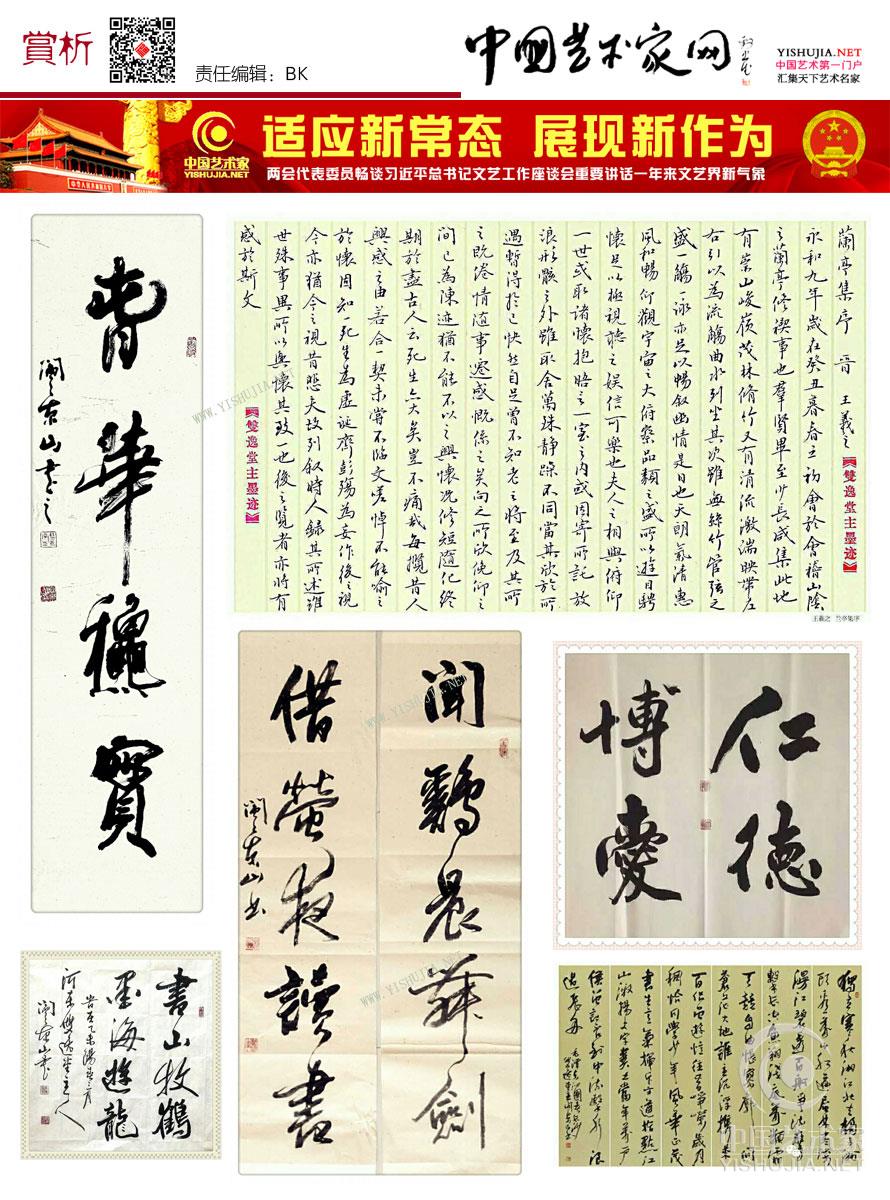 賞析
责任编辑：BK
中國艺术家网
YISHUJIA.NET
中国艺术第一门户
汇集天下艺术名家
中国艺术家
YISHUJIA.NET
适应新常态 展现新作为
两会代表委员畅谈习近平总书记文艺工作座谈会重要讲话一年来文艺界新气象
春華穐實
闞东山书之
蘭亭集序 晋 王羲之
《雙逸堂主墨迹》
永和九年歲在癸丑暮春之初會於會稽山陰
之蘭亭修禊事也群賢畢至少長咸集此地
有崇山峻嶺茂林脩竹又有清流激湍映帶左
右引以為流觴曲水列坐其次雖無絲竹管弦之
盛一觴一詠亦足以暢叙幽情是日也天朗氣清惠
風和暢仰觀宇宙之大俯察品類之盛所以遊目騁
懷足以極視聽之娱信可樂也夫人之相與俯仰
一世或取諸懷抱晤之一室之内或因寄所託放
浪形骸之外雖取舍萬殊静躁不同當其欣於所
遇暫得於己快然自足曾不知老之將至及其所
之既倦情随事遷感慨係之矣向之所欣俛仰之
間已為陳迹猶不能不以之興懷况修短随化終
期於盡古人云死生亦大矣豈不痛哉每攬昔人
興感之由若合一契未嘗不臨文嗟悼不能喻之
於懷固知一死生為虚誕齊彭殤為妄作後之視
今亦猶今之視昔悲夫故列叙時人録其所述雖
世殊事異所以興懷其致一也後之覽者亦將有
感於斯文
《雙逸堂主墨迹》
王羲之 兰亭集序
WWW.YISHUJIA.NET
聞鷄晨舞劍
借螢夜讀書
闞东山书
WWW.YISHUJIA.NET
仁德
博愛
書山牧鶴
墨海遊龍
獨立寒秋湘江北去橘子洲
中国艺术家
YISHUJIA.NET